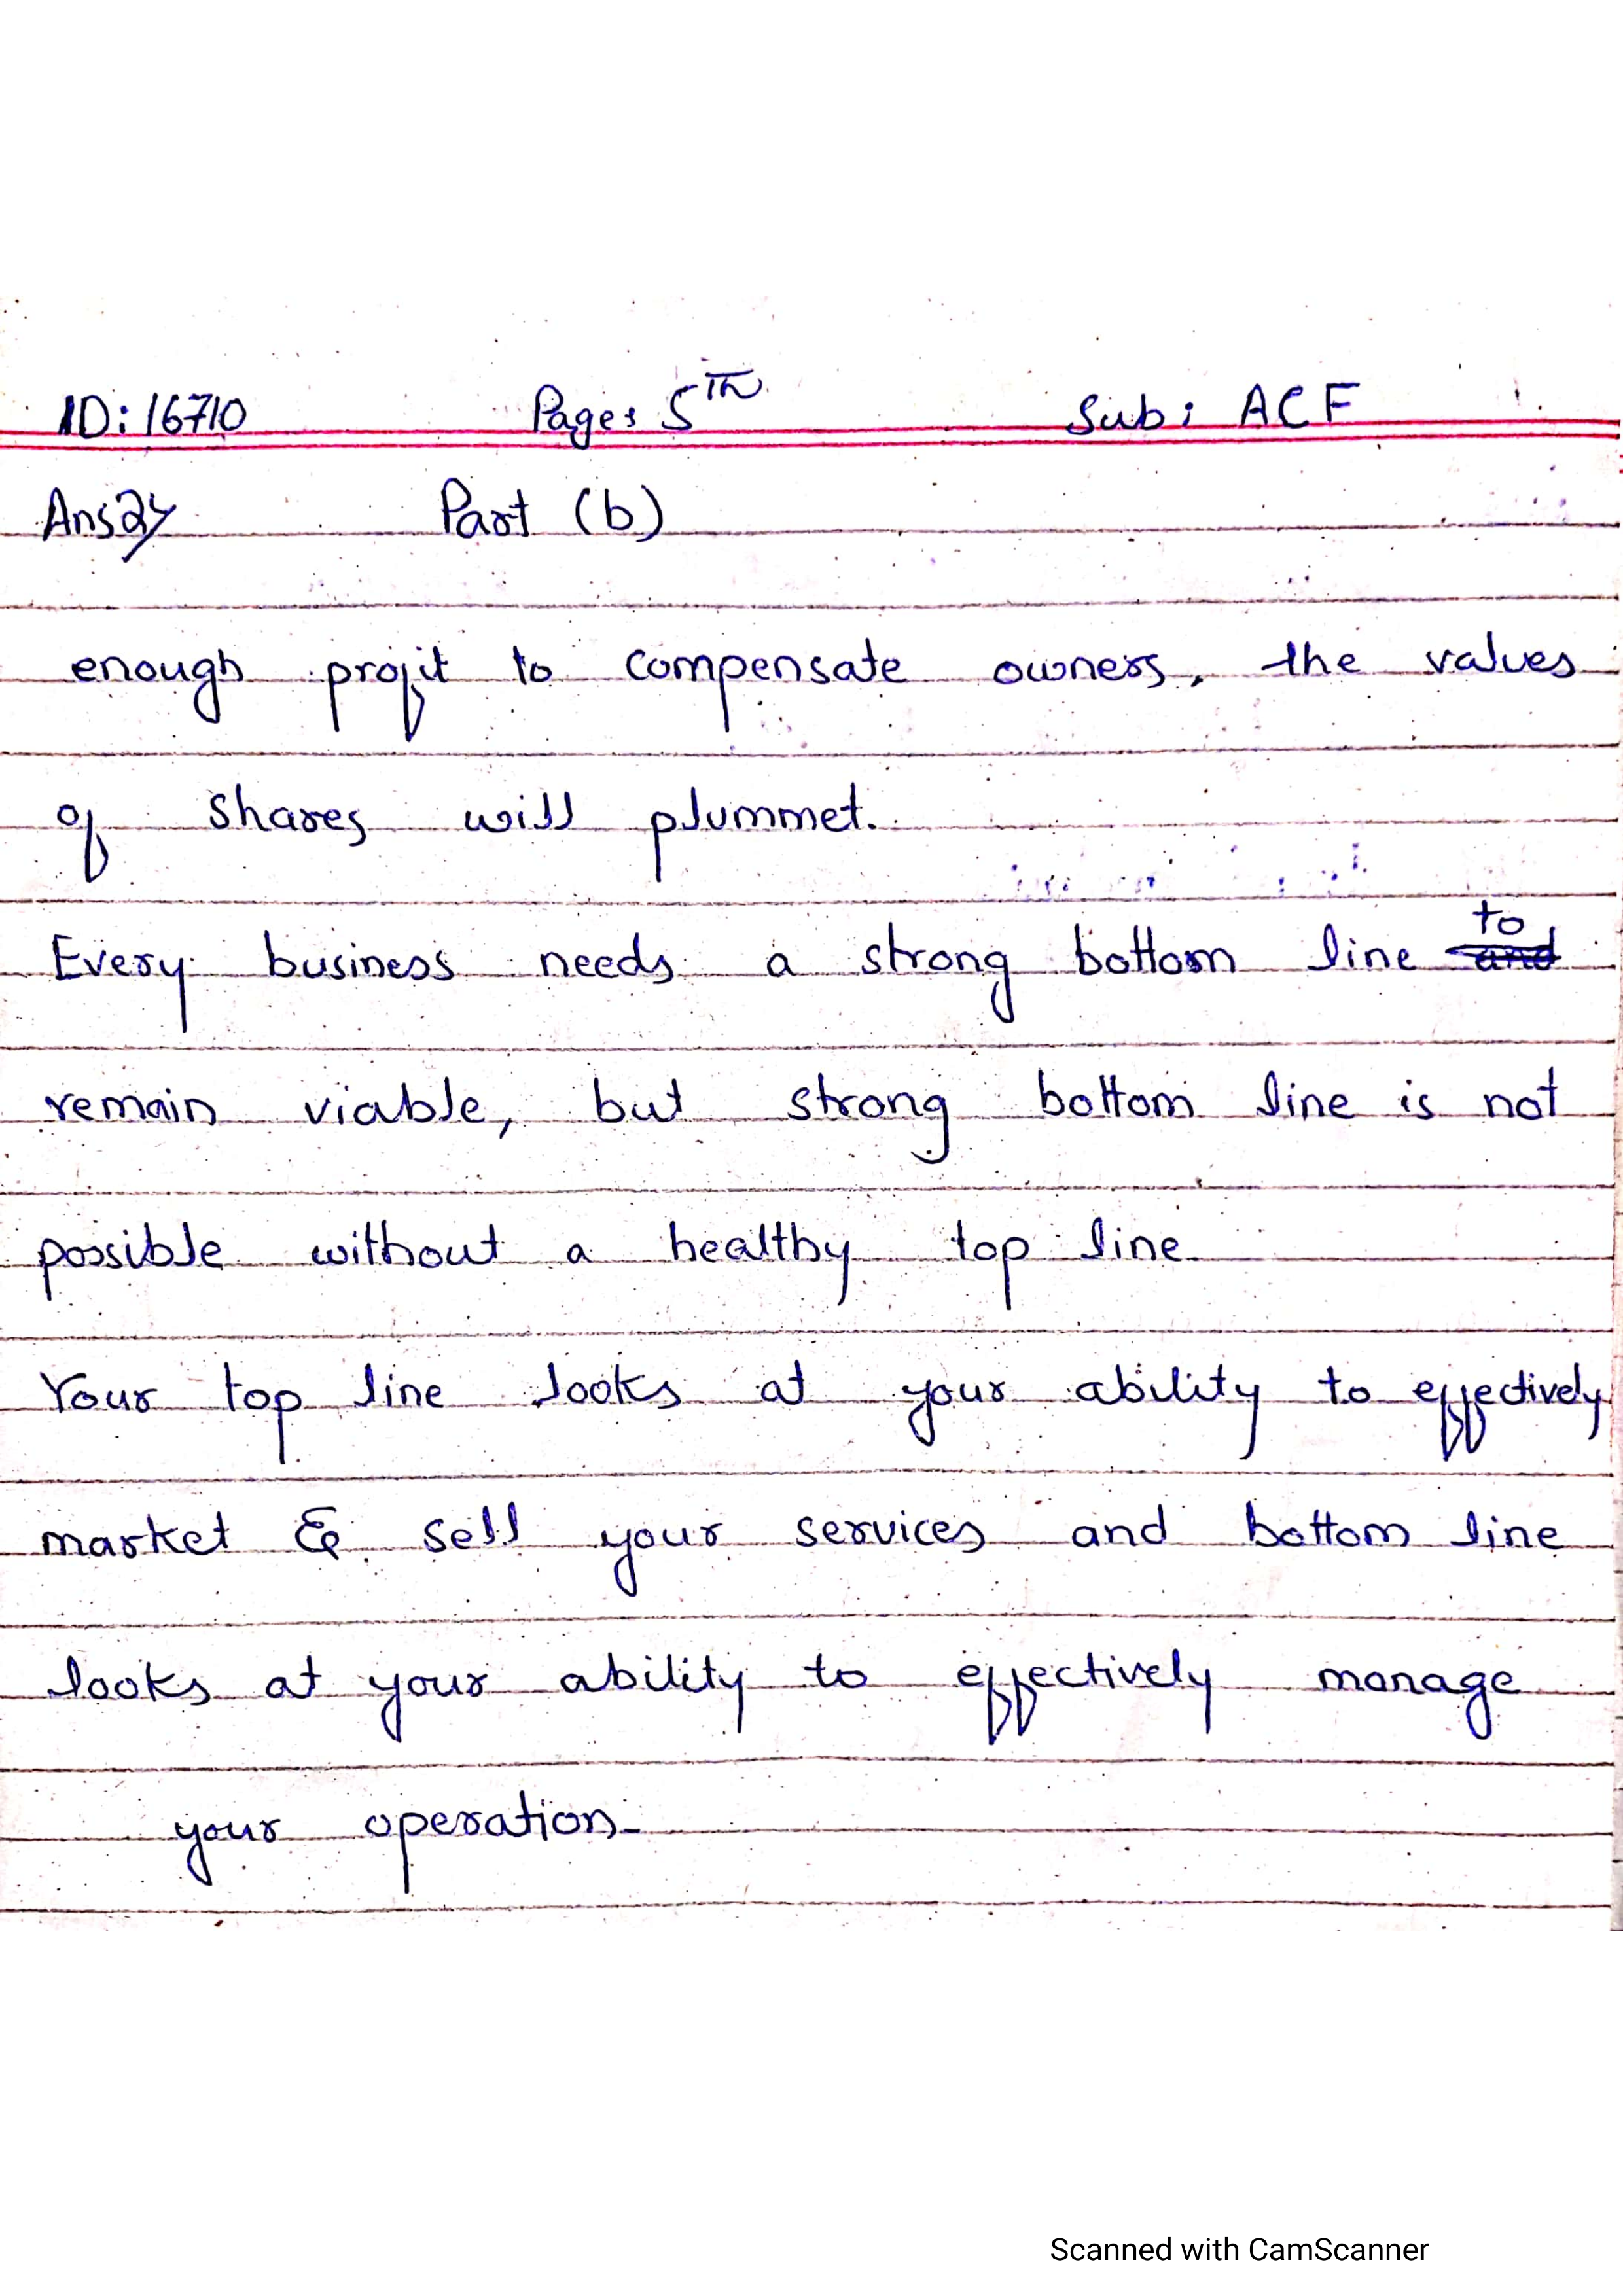 ID: 16710 Page: 5Th Sub: ACF
Ans2) Part (b)
enough profit to compensate owners, the values
of shares will plummet.
Every business needs a strong bottom line ~~and~~ to
remain viable, but strong bottom line is not
possible without a healthy top line.
Your top line looks at your ability to effectively
market & sell your services and bottom line
looks at your ability to effectively manage
your operation.
Scanned with CamScanner